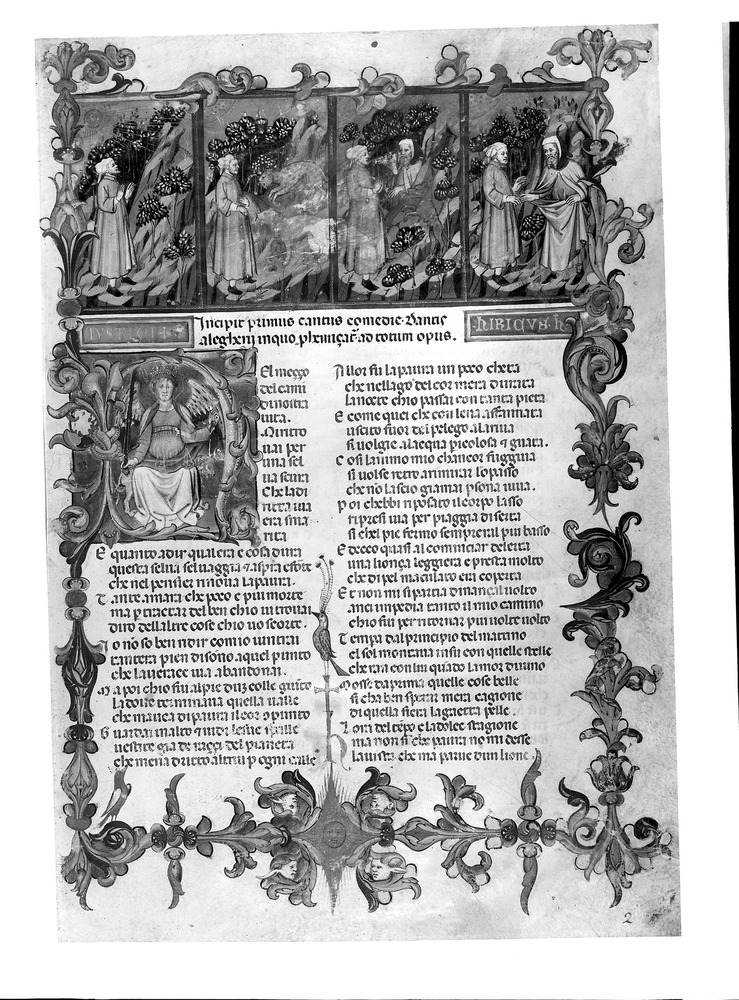 Incipit primus cantus comedie Dantis
alegherij in quo ad totum opus.
El meçço
del cami
di nostra
uita.
Mi ritro
uai per
una sel
ua scura
Che la di
ritta uia
era sma
rita
E quanto a dir qual era e cosa dura
questa selua seluaggia & aspra e forte
che nel pensier rinoua la paura.
Tant e amara che poco e piu morte
ma p tractar del ben chio ui trouai
diro dellaltre cose chio uo scorte.
Io no so ben ridir comio uintrai
tantera pien di sono a quel punto
che la uerace uia abandonai.
Ma poi chio fui al pie dun colle giunto
la doue terminaua quella ualle
che mauea di paura il cor opunto
Guardai in alto & uidi le sue spalle
uestite gia de raggi del pianeta
che mena dritto altrui p ogni calle
Allor fu la paura un poco cheta
che nel lago del cor mera durata
la nocte chio passai con tanta pieta
E come quei che con lena affannata
uscito fuor del pelego alla riua
si uolgie alaqua picolosa & guata.
Cosi lanimo mio chancor fuggiua
si uolse retro a rimirar lo passo
che no lascio giamai psona uiua.
Poi chebbi riposato il corpo lasso
ripresi uia per piaggia diserta
si chel pie fermo sempre ral piu basso
Et ecco quasi al cominciar delerta
una lionça leggiera e presta molto
che di pel maculato era coperta
Et non mi si partia dinançi al uolto
anci impedia tanto il mio camino
chio fui per ritornar piu uolte uolto
Tempa dal principio del matino
el sol montaua in su con quelle stelle
chera con lui quado lamor diuino
Mosse da prima quelle cose belle
si cha ben sperar mera cagione
di quella fiera la gaetta pelle.
Lora del tepo e la dolce stagione
ma non si che paura no mi desse
la uista che ma parue dun lione
2